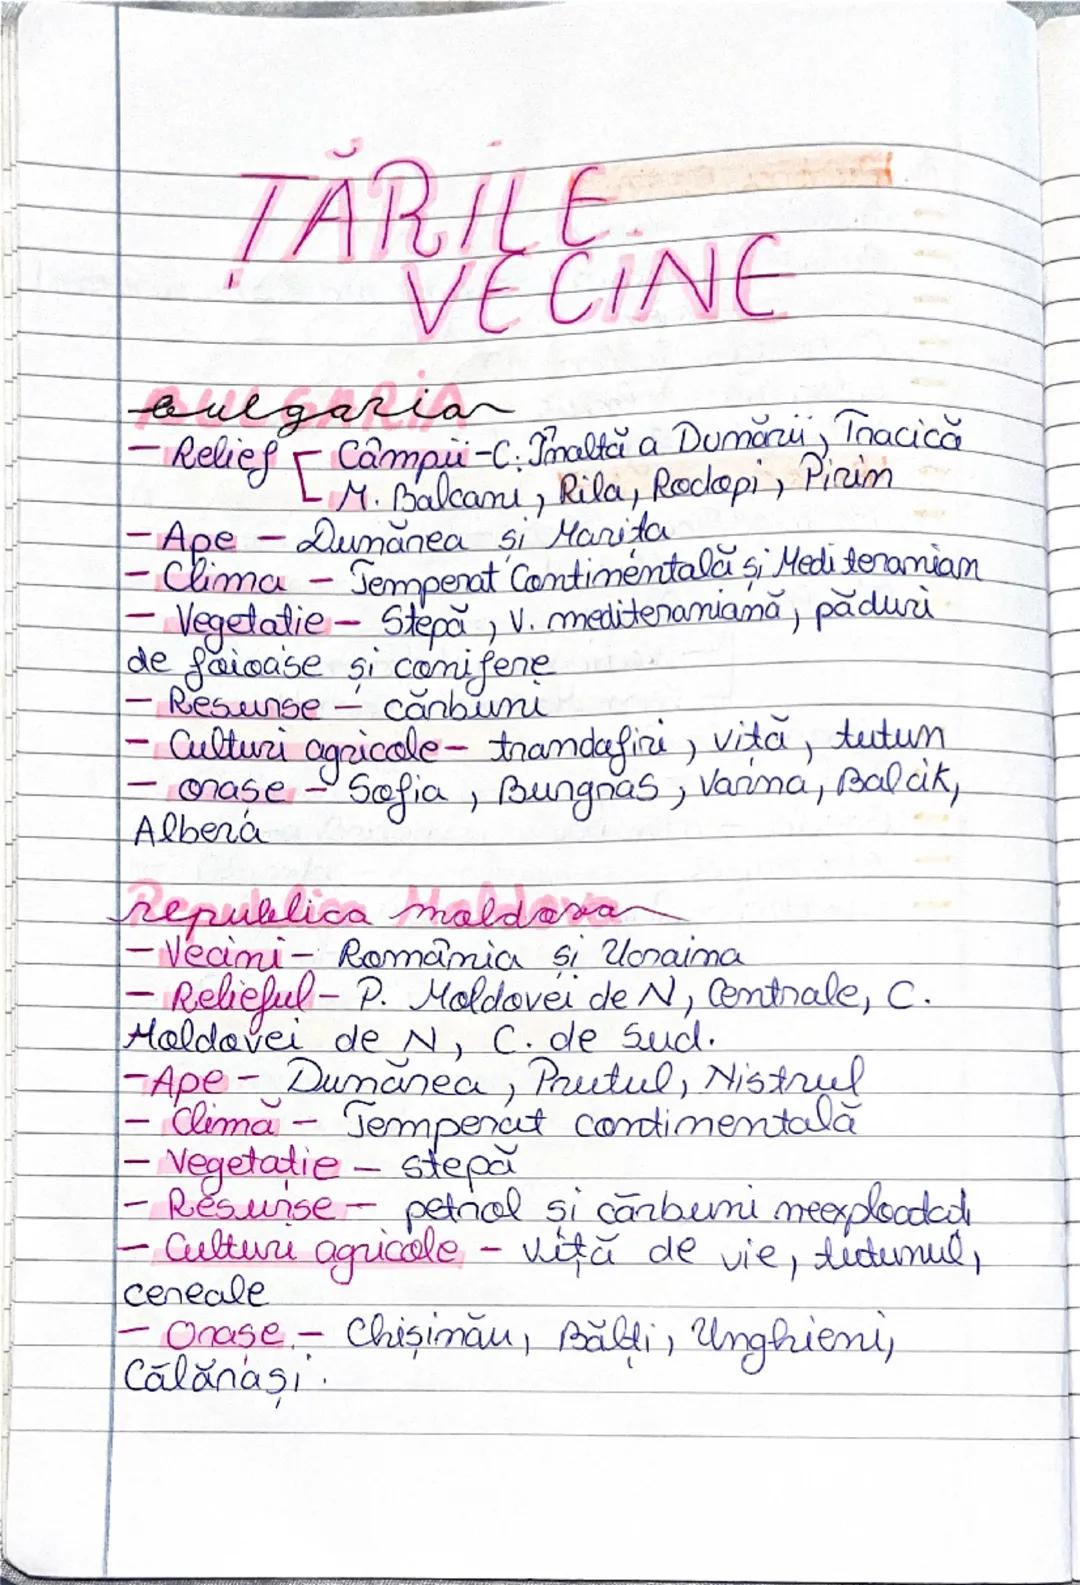 ȚĂRILE
VECINE
Bulgaria
- Relief [ Câmpii - C. Înaltă a Dumării, Tracică
M. Balcani, Rila, Rodopi, Pirin
- Ape - Dunărea și Marița
- Clima - Temperat Continentală și Mediteranian
- Vegetatie - Stepă, V. mediteraniană, păduri
de foioase și conifere
- Resurse - cărbuni
- Culturi agricole - trandafiri, viță, tutun
- orașe - Sofia, Burgras, Varna, Balcik,
Albera
Republica Moldova
- Vecini - România și Ucraina
- Relieful - P. Moldovei de N, Centrale, C.
Moldovei de N, C. de Sud.
- Ape - Dunărea, Prutul, Nistrul
- Climă - Temperat continentală
- Vegetație - stepă
- Resurse - petrol și cărbuni neexploatați
- Culturi agricole - viță de vie, tutunul,
cereale
- Orașe - Chișinău, Bălți, Unghieni,
Călărași.